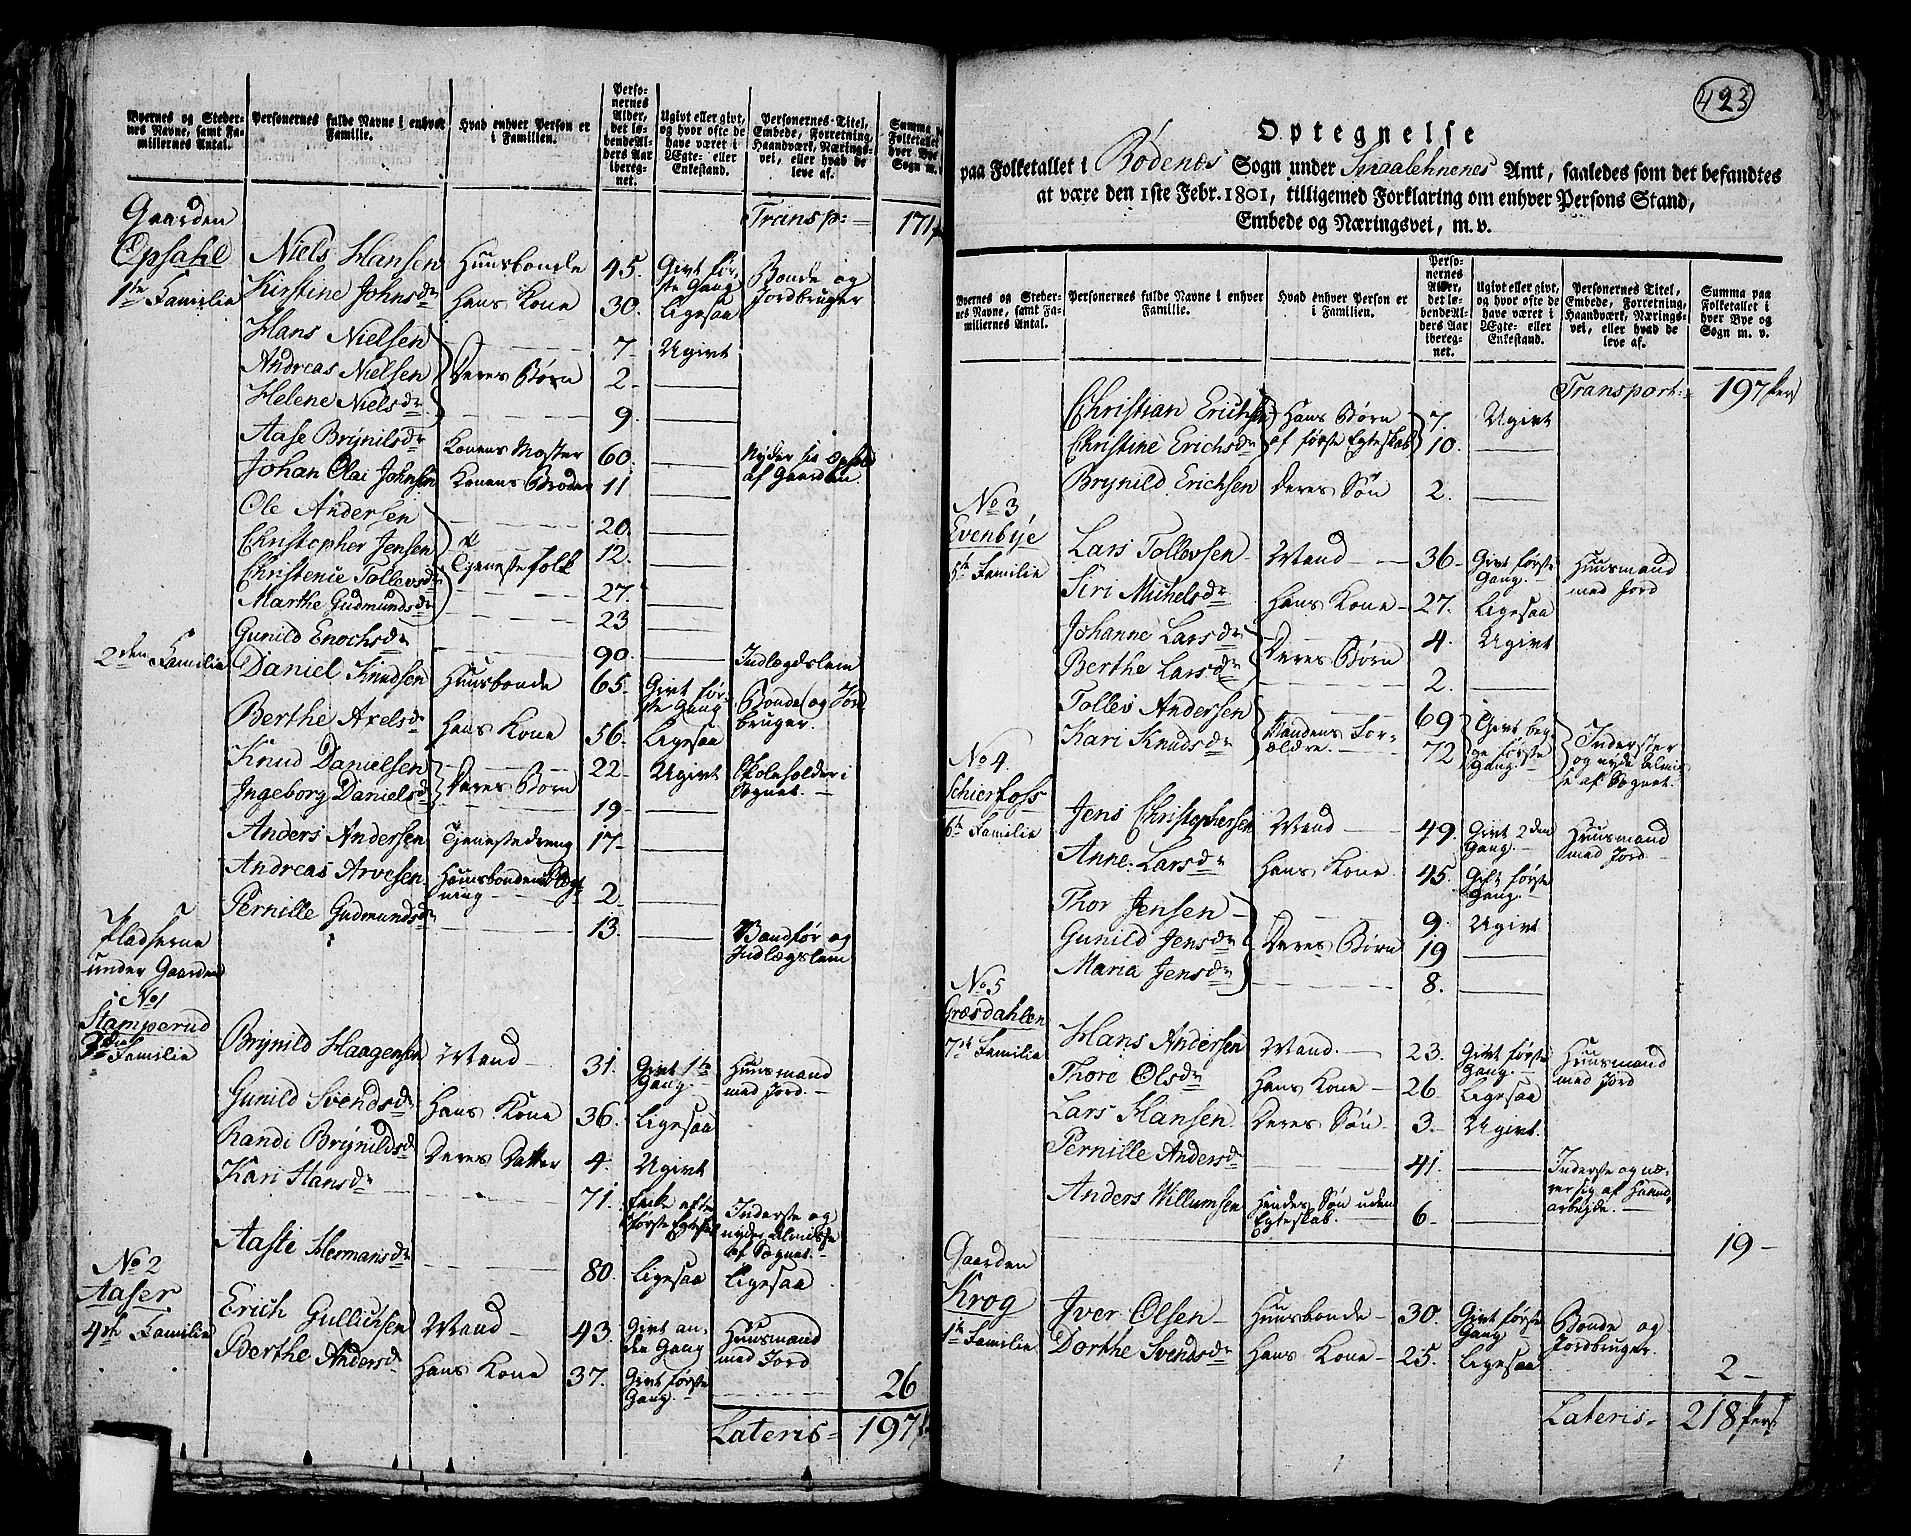 Byernes og Stedernes Navne, samt Familiernes Antal. | Personernes fulde Navne i enhver Familie. | Hvad enhver Person er i Familien. | Personernes Alder, det løbende Alders Aar iberegnet. | Ugivt eller givt, og hvor ofte de have været i Ægte- eller Enkestand. | Personernes Titel, Embede, Forretning, Haandværk, Næringsvei, eller hvad de leve af. | Summa Folketallet hver Bye Sogn m.
Gaarden Transp: 171
Opsahl Niels Hansen Huusbonde 45. Givt første Gang Bonde og Jordbruger
1te Familie Kirstine Johnsdr Hans Kone 30. Ligesaa
Hans Nielsen 7 Ugivt
Andreas Nielsen Deres Børn 2
Helene Nielsdr 9.
Aase Brynilsdr Konens Moster 60. Nyder sit Ophold af Gaarden
Johan Olai Johnsen Konens Broder 11
Ole Andersen 20.
Christopher Jensen 12.
Christenie Tollevsdr Tjenestefolk 27.
Marthe Gudmundsdr 23
Gunild Enochsdr 90. Indlægdslem
2den Familie Daniel Knudsen Huusbonde 65 Givt første Gang Bonde og Jordbruger.
Berthe Axelsdr Hans Kone 56. Ligesaa
Knud Danielsen 22 Ugivt Skoleholder i Sognet.
Ingeborg Danielsdr Deres Børn 19
Anders Andersen Tjenestedreng 17
Andreas Arvesen Huusbondens Slægtning 2
Pernille Gudmundsdr 13. Vanfør og Indlægslem
Pladserne
under Gaarden
No 1
Stamperud
3die Familie Brynild Haagensen Mand 31. Givt 1te Gang. Huusmand med Jord.
Gunild Svendsdr Hans Kone 36. Ligesaa
Randi Brynildsdr Deres Datter 4. Ugivt
Kari Hansdr 71. Enke efter første Egteskab Inderste og nyder Almisse af Sognet.
Aaste Hermansdr 80. Ligesaa Ligesaa
No 2
Aaser
4de Familie Erich Gulliksen Mand 43. Givt anden Gang Huusmand med Jord
Berthe Andersdr Hans Kone 37. Givt første Gang. 26
Lateris 197
423
Optegnelse
paa Folketallet i Rødenes Sogn under Smaalehnenes Amt, saaledes som det befandtes
at være den 1ste Febr. 1801, tilligemed Forklaring om enhver Persons Stand,
Embede og Næringsvei, m. v.
Byernes og Stedernes Navne, samt Familiernes Antal. | Personernes fulde Navne i enhver Familie. | Hvad enhver Person er i Familien. | Personernes Alder, det løbende Alders Aar iberegnet. | Ugivt eller givt, og hvor ofte de have været i Ægte- eller Enkestand. | Personernes Titel, Embede, Forretning, Haandværk, Næringsvei, eller hvad de leve af. | Summa paa Folketallet i hver Bye og Sogn m. v.
Transport: 197 pers
Christian Erichsen Hans Børn af første Egteskab 7. Ugivt
Christine Erichsdr 10.
Brynild Erichsen Deres Søn 2.
No 3
Evenbye
5te Familie Lars Tollevsen Mand 36 Givt første Gang. Huusmand med Jord
Siri Michelsdr Hans Kone 27. Ligesaa
Johanne Larsdr Deres Børn 4. Ugivt
Berthe Larsdr 2.
Tollev Andersen Mandens Forældre. 69 Givt begge første Gang. Inderster og nyde Almisse af Sognet.
Kari Knudsdr 72
No 4.
Schierfoss
6te Familie Jens Christophersen Mand 49. Givt 2den Gang. Huusmand med Jord
Anne Larsdr Hans Kone 45. Gift første Gang.
Thor Jensen 9. Ugivt
Gunild Jensdr Deres Børn 19
Maria Jensdr 8.
No 5
Græsdahlen
7de Familie Hans Andersen Mand 23. Givt første Gang. Huusmand med Jord
Thore Olsdr Hans Kone 26 Ligesaa
Lars Hansen Deres Søn 3. Ugivt.
Pernille Andersdr 41. Inderste og nærer sig af Haandarbejde.
Anders Willumsen Hendes Søn uden Egteskab. 6
19
Gaarden
Krog Iver Olsen Huusbonde 30. Givt første Gang Bonde og Jordbruger.
1te Familie Dorthe Svendsdr Hans Kone 25. Ligesaa
2
Lateris 218 pers